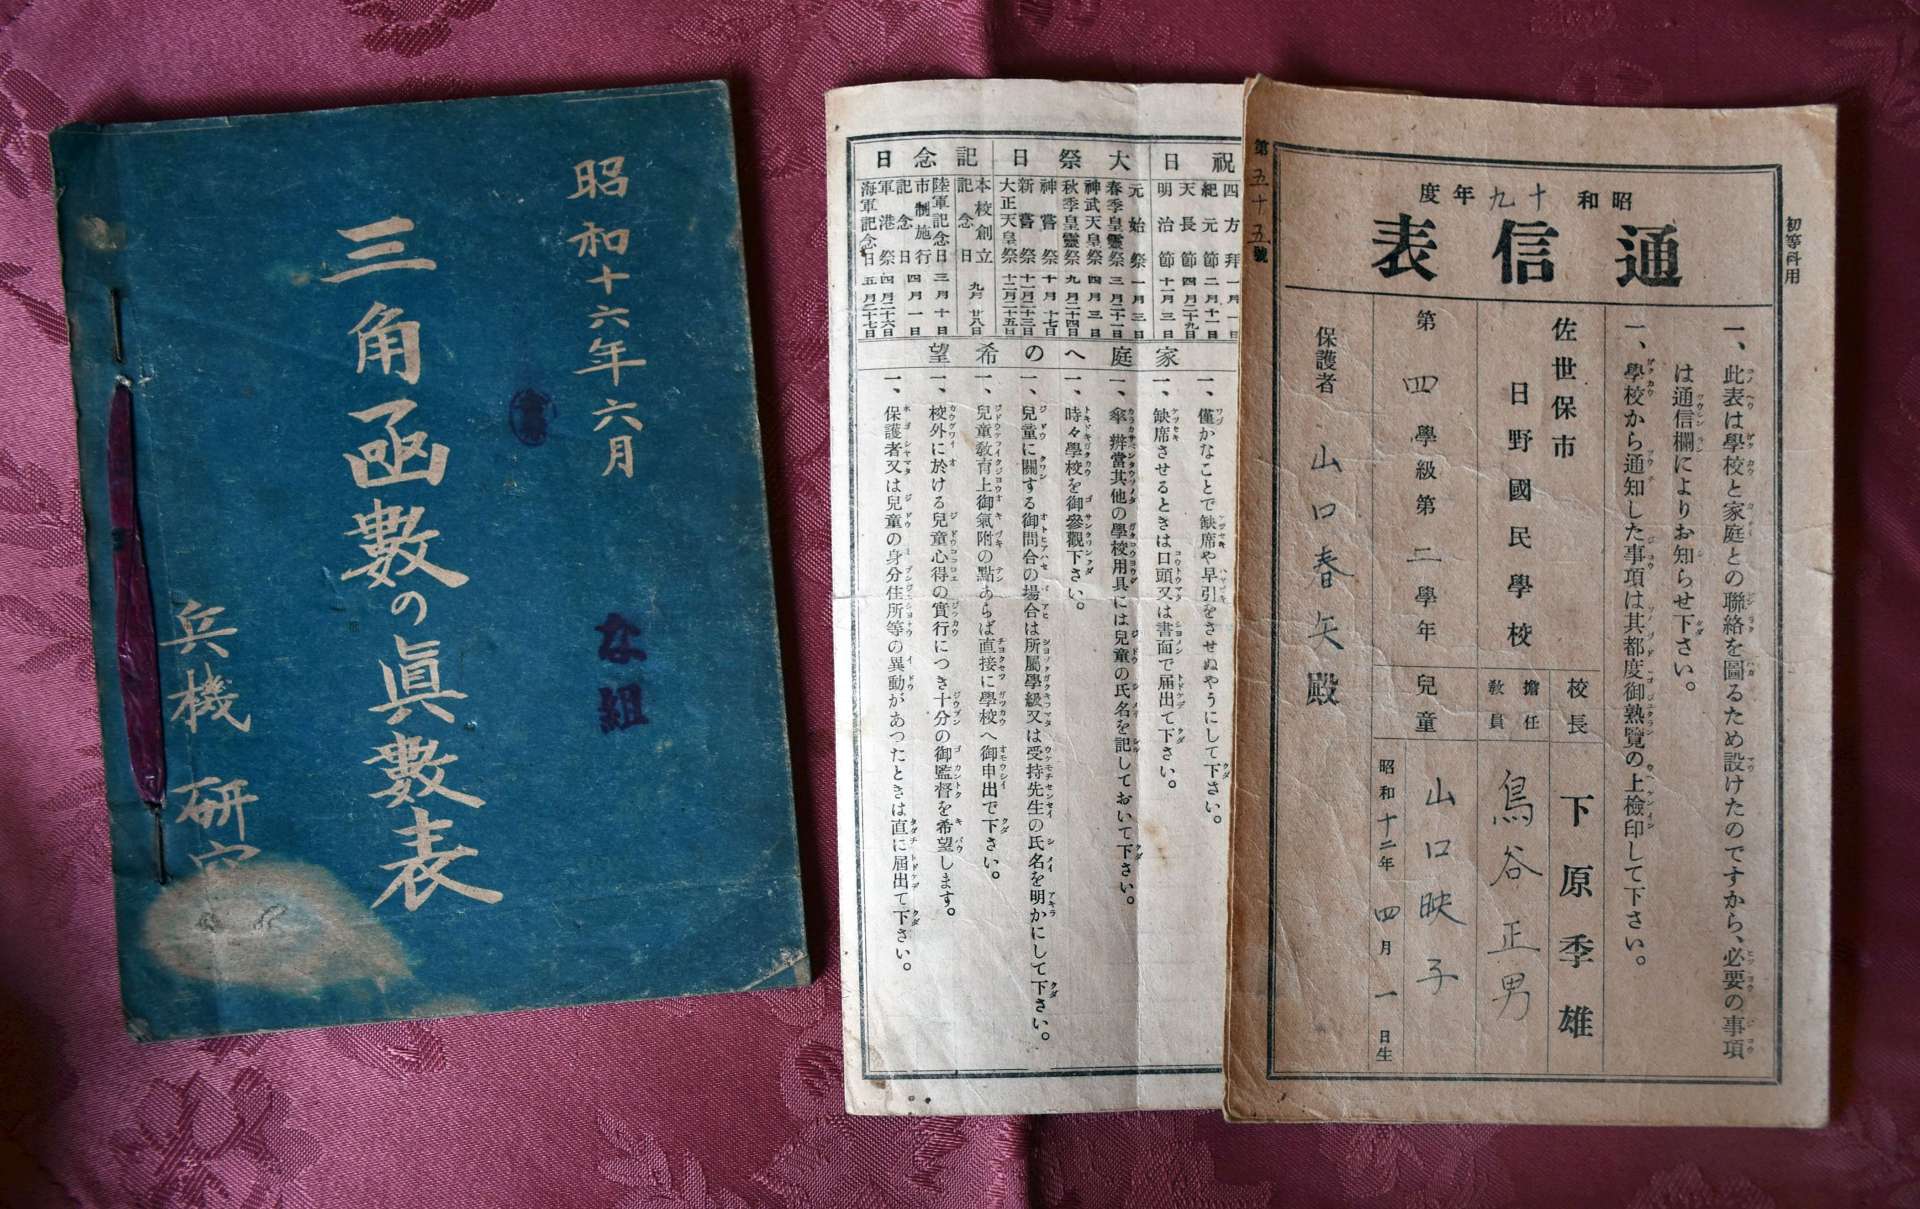 昭和十六年六月
三角函數の眞數表
な組
兵機 研究
祝日
四方拜 一月一日
紀元節 二月十一日
天長節 四月二十九日
明治節 十一月三日
大祭日
元始祭 一月三日
春季皇靈祭 三月二十一日
神武天皇祭 四月三日
秋季皇靈祭 九月二十四日
神嘗祭 十月十七日
新嘗祭 十一月二十三日
大正天皇祭 十二月二十五日
記念日
本校創立記念日 九月廿八日
陸軍記念日 三月十日
市制施行記念日 四月一日
軍港祭 四月二十六日
海軍記念日 五月二十七日
家庭への希望
一、僅かなことで缺席や早引をさせぬやうにして下さい。
一、缺席させるときは口頭又は書面で届出て下さい。
一、傘、辨當其他の學校用具には兒童の氏名を記しておいて下さい。
一、時々學校を御參觀下さい。
一、兒童に關する御問合の場合は所屬學級又は受持先生の氏名を明かにして下さい。
一、兒童敎育上御氣附の點あらば直接に學校へ御申出で下さい。
一、校外に於ける兒童心得の實行につき十分の御監督を希望します。
一、保護者又は兒童の身分住所等の異動があつたときは直に屆出て下さい。
初等科用
第五十五號
昭和十九年度
通信表
一、此表は學校と家庭との聯絡を圖るため設けたのですから、必要の事項
は通信欄によりお知らせ下さい。
一、學校から通知した事項は其都度御熟覽の上檢印して下さい。
佐世保市
日野國民學校
校長 下原季雄
擔任敎員 鳥谷正男
第四學級第二學年
兒童 山口映子
昭和十二年四月一日生
保護者 山口春矢殿